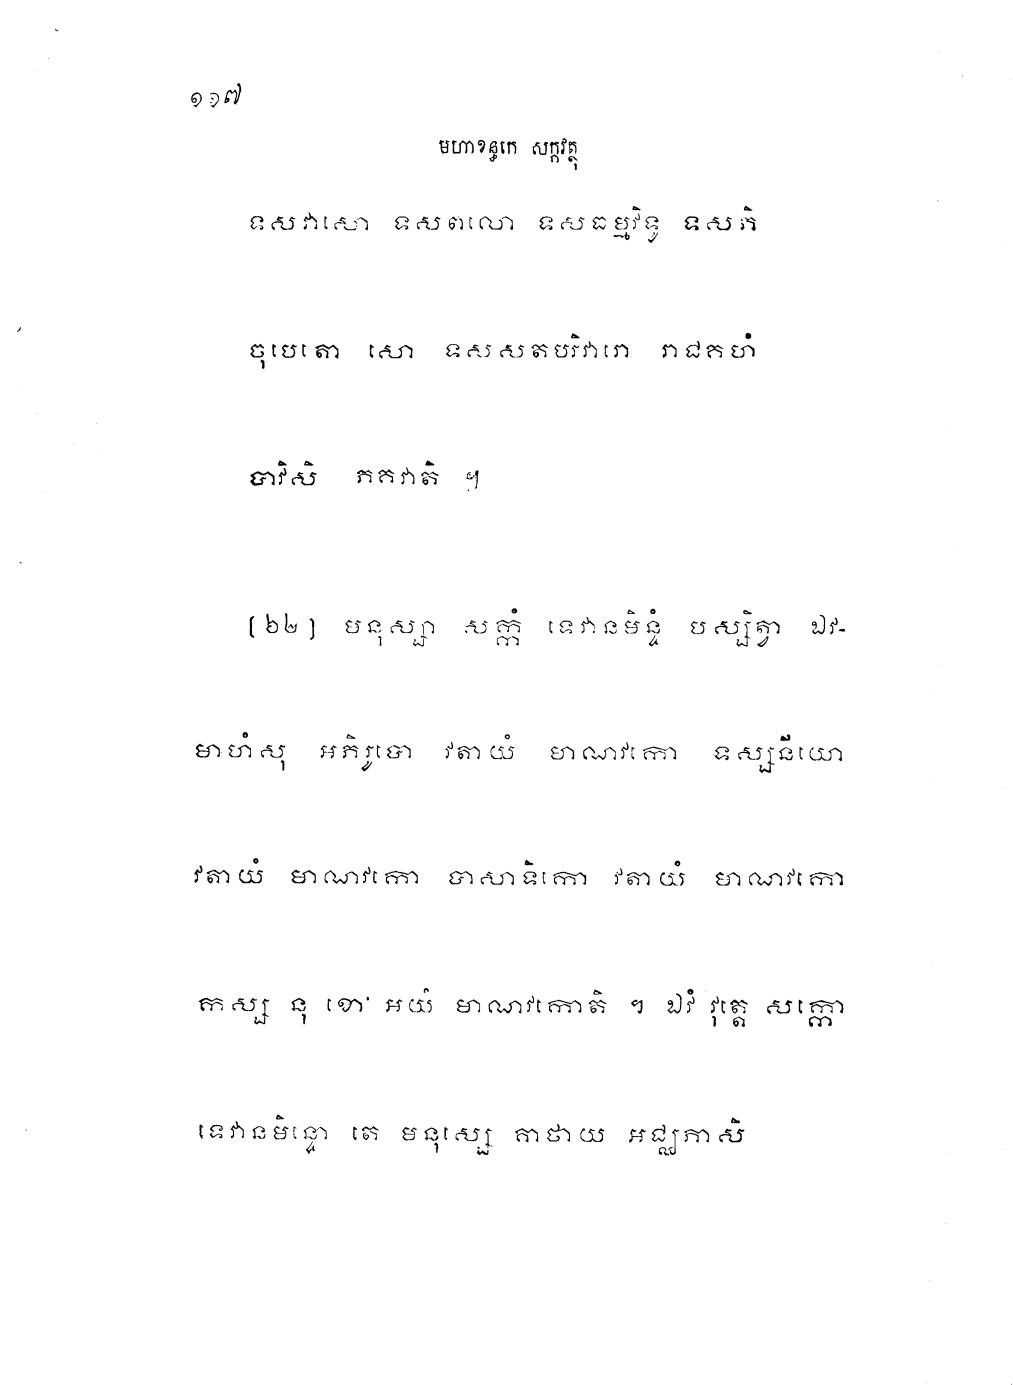 ១១៧
មហាខន្ធកេ សក្កវត្ថុ
ទសវាសោ ទសពលោ ទសធម្មវិទូ ទសភិ
ចុបេតោ សោ ទសសតបរិវារោ រាជគហំ
បាវិសិ ភគវាតិ ។
[៦២] មនុស្សា សក្កំ ទេវានមិន្ទំ បស្សិត្វា ឯវ-
មាហំសុ អភិរូបោ វតាយំ មាណវកោ ទស្សនីយោ
វតាយំ មាណវកោ បាសាទិកោ វតាយំ មាណវកោ
កស្ស នុ ខោ អយំ មាណវកោតិ ។ ឯវំ វុត្តេ សក្កោ
ទេវានមិន្ទោ តេ មនុស្សេ គាថាយ អជ្ឈភាសិ